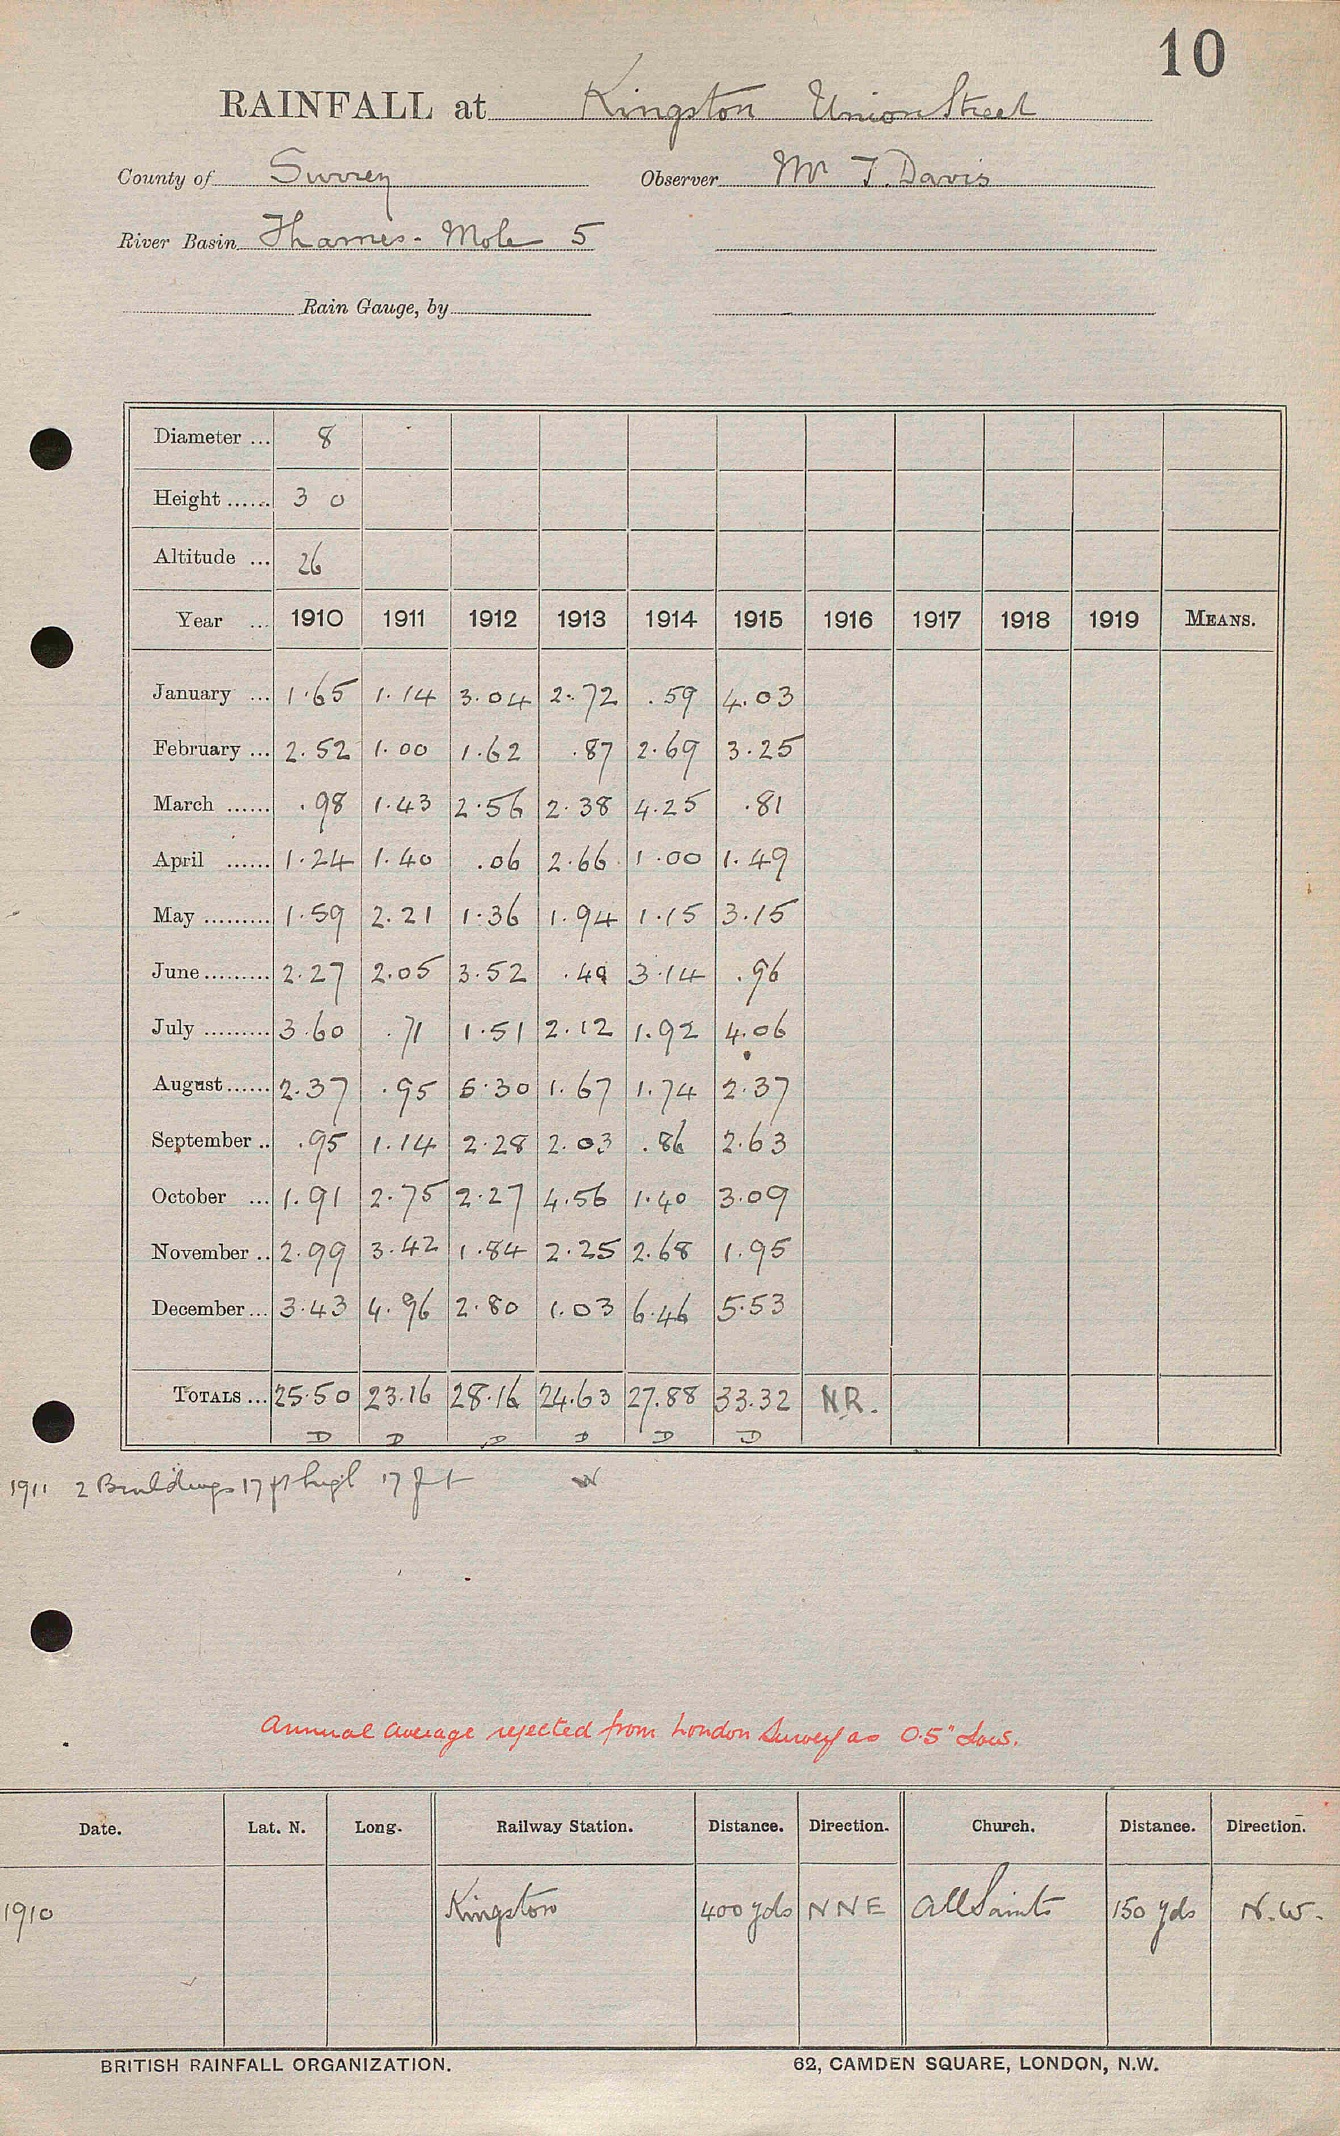 10
RAINFALL at Kingston Union Street
County of Surrey Observer Mr T. Davis
River Basin Thames - Mole 5
Rain Gauge, by
Diameter ... 8
Height ...... 3 0
Altitude ... 26
Year ... 1910 1911 1912 1913 1914 1915 1916 1917 1918 1919 MEANS.
January ... 1.65 1.14 3.04 2.72 .59 4.03
February ... 2.52 1.00 1.62 .87 2.69 3.25
March ...... .98 1.43 2.56 2.38 4.25 .81
April ...... 1.24 1.40 .06 2.66 1.00 1.49
May ......... 1.59 2.21 1.36 1.94 1.15 3.15
June ......... 2.27 2.05 3.52 .40 3.14 .96
July ......... 3.60 .71 1.51 2.12 1.92 4.06
August ...... 2.37 .95 5.30 1.67 1.74 2.37
September .. .95 1.14 2.28 2.03 .86 2.63
October ... 1.91 2.75 2.27 4.56 1.40 3.09
November .. 2.99 3.42 1.84 2.25 2.68 1.95
December ... 3.43 4.96 2.80 1.03 6.46 5.53
TOTALS ... 25.50 23.16 28.16 24.63 27.88 33.32 N.R.
D D D D D D
1911 2 Buildings 17 ft high 17 ft W
Annual average rejected from London Survey as 0.5" low.
Date. Lat. N. Long. Railway Station. Distance. Direction. Church. Distance. Direction.
1910 Kingston 400 yds NNE All Saints 150 yds N.W.
BRITISH RAINFALL ORGANIZATION. 62, CAMDEN SQUARE, LONDON, N.W.